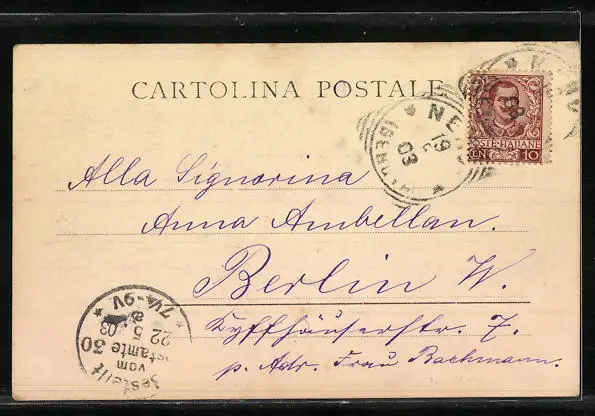 CARTOLINA POSTALE
POSTE·ITALIANE
CEN 10
NERVI
19
03
(GENOVA)
Alla Signorina
Anna Ambellan.
Berlin W.
Kyffhäuserstr. 7.
p. Adr. Frau Bachmann.
Bestellt
vom
Postamte 30
22 5 03
7¼-9V.